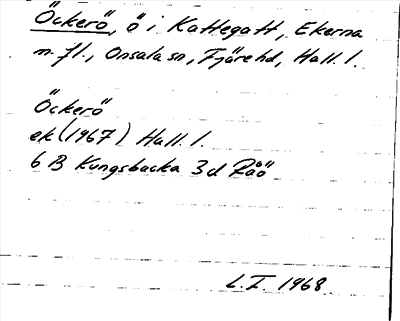 Öckerö, ö i Kattegatt, Ekerna
m.fl., Onsala sn, Fjäre hd, Hall. l.
Öckerö
ek (1967) Hall. l.
6 B Kungsbacka 3d Råö
L.I. 1968